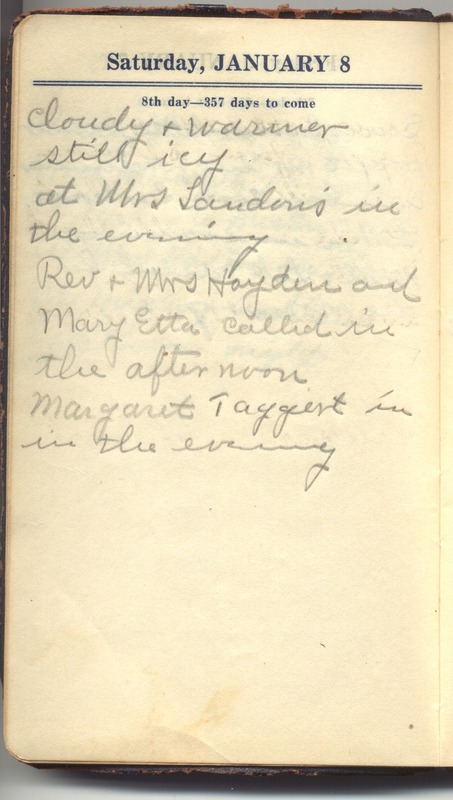 Saturday, JANUARY 8
8th day—357 days to come
cloudy + warmer
still icy
at Mrs Landon's in
the evening
Rev + Mrs Hayden and
Mary Etta called in
the afternoon
Margaret Taggert in
in the evening